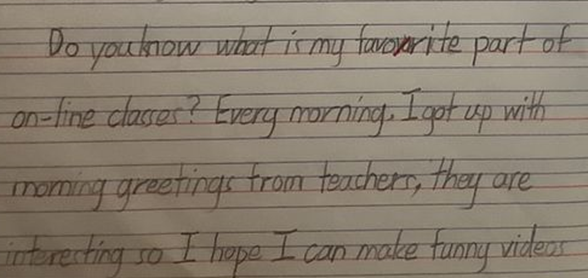 Do you know what is my favourite part of
on-line classes? Every morning, I got up with
morning greetings from teachers, they are
interesting so I hope I can make funny videos